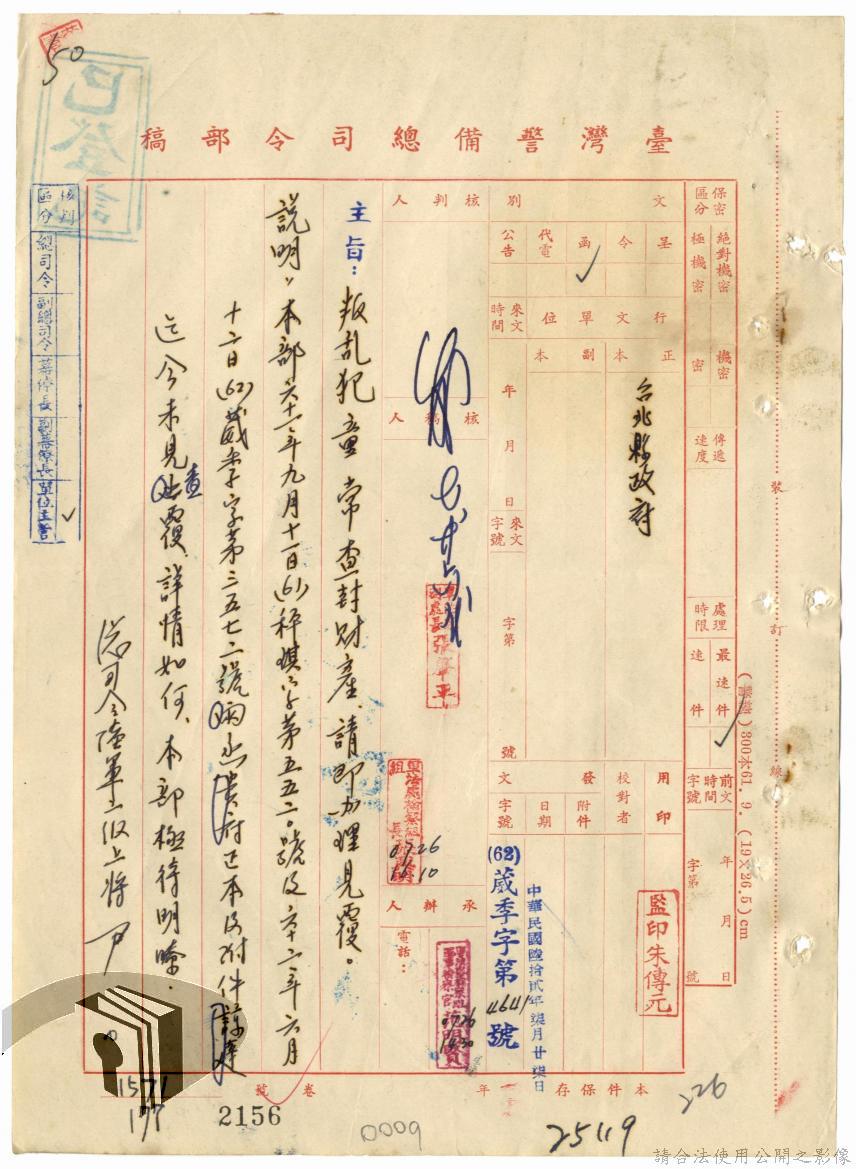 150
已登記
臺灣警備總司令部稿
保密區分
絕對機密
極機密
機密
密
傳遞速度
處理時限
最速件
速件
前文時間字號
年 月 日
字第 號
文別
呈
令
函
代電
公告
行文單位
正本
副本
台北縣政府
來文時間
年 月 日
來文字號
字第 號
用印
監印朱傳元
校對者
附件
發文
日期
中華民國陸拾貳年柒月廿柒日
字號
(62)葳季字第4641號
本件保存 年
核判人
核稿人
承辦人
電話:
0726
1110
0726
1030
主旨:叛乱犯童常查封財產、請即加理見覆。
說明、本部六十一年九月十一日(61)秤琪字第五五二〇號及六十二年六月
十六日(62)葳季字第三五七二號函貴府正本及附件諒達
迄今未見查覆、詳情如何、本部極待明瞭.
總司令陸軍二級上將 尹
核判區分
總司令
副總司令
參謀長
副參謀長
單位主管
裝
訂
線
300本61. 9. (19×26.5)cm
卷 號
1571
177
2156
0009
25119
226
請合法使用公開之影像